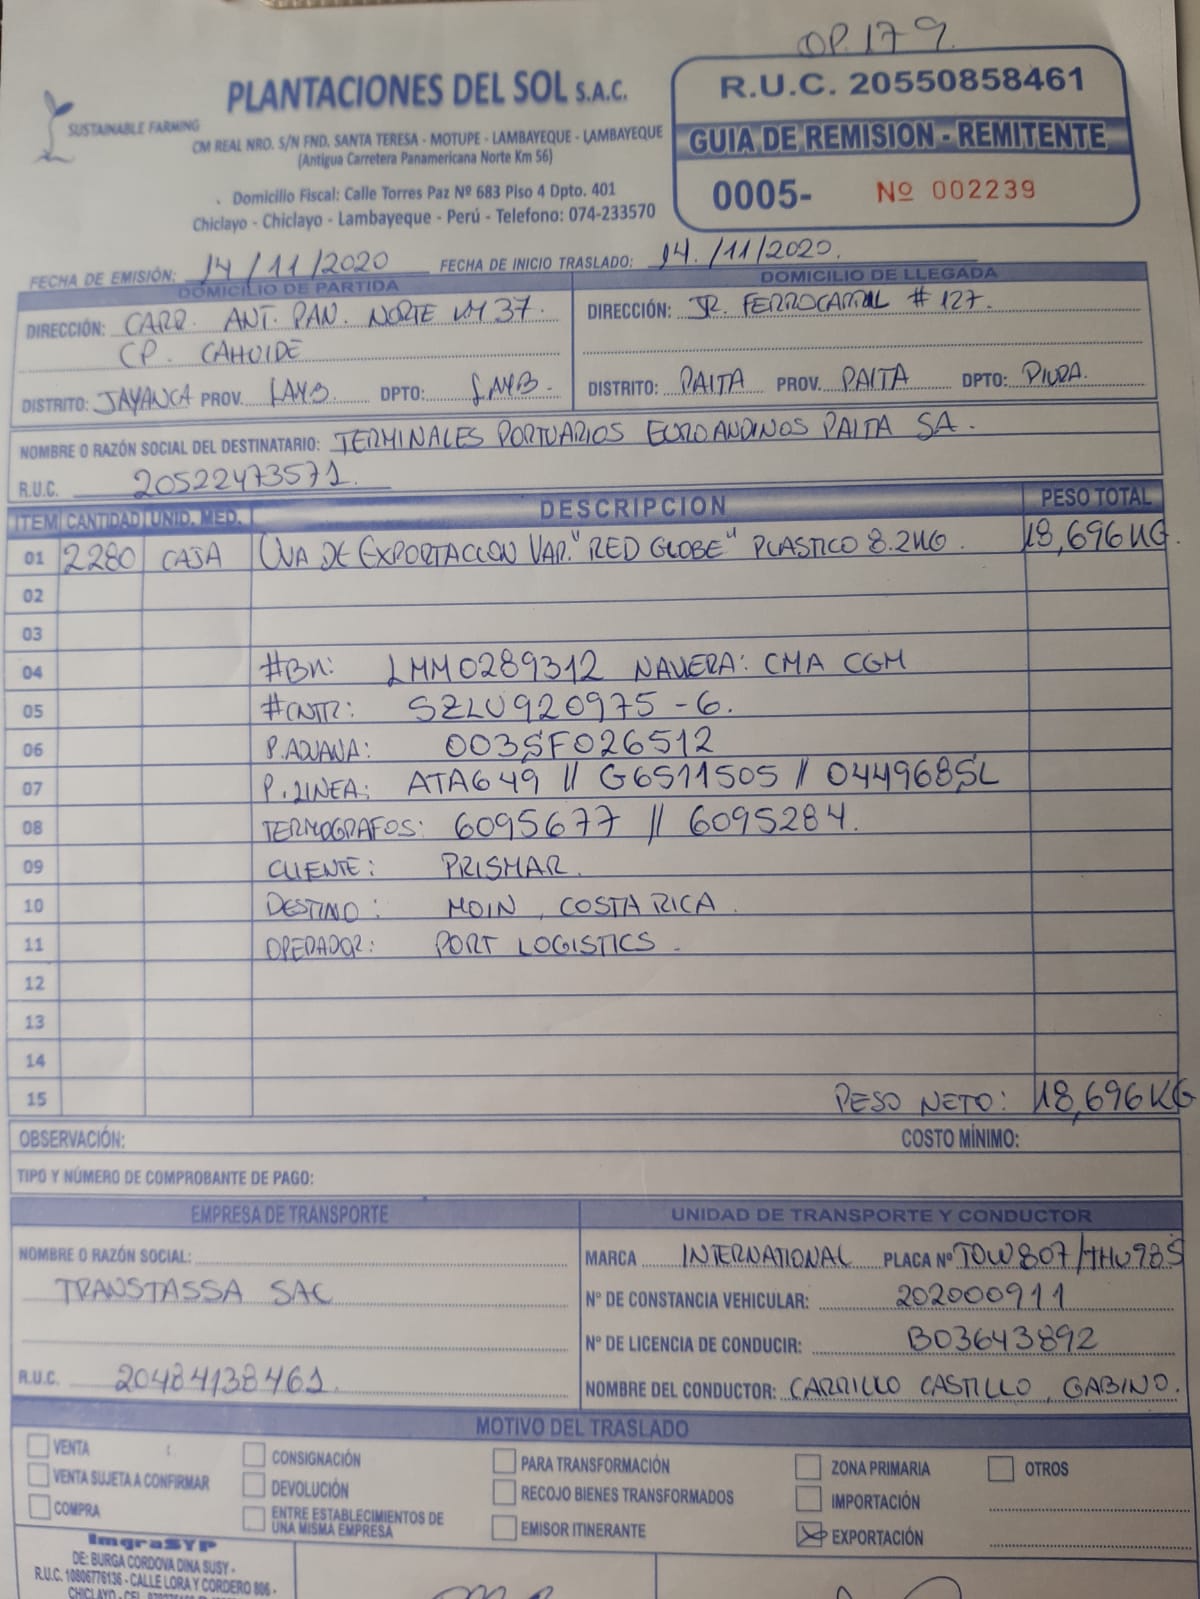 OP. 179.
SUSTAINABLE FARMING
PLANTACIONES DEL SOL S.A.C.
CM REAL NRO. S/N FND. SANTA TERESA - MOTUPE - LAMBAYEQUE - LAMBAYEQUE
(Antigua Carretera Panamericana Norte Km 56)
Domicilio Fiscal: Calle Torres Paz Nº 683 Piso 4 Dpto. 401
Chiclayo - Chiclayo - Lambayeque - Perú - Telefono: 074-233570
R.U.C. 20550858461
GUIA DE REMISION - REMITENTE
0005- Nº 002239
FECHA DE EMISIÓN: 14/11/2020 FECHA DE INICIO TRASLADO: 14./11/2020.
DOMICILIO DE PARTIDA
DIRECCIÓN: CARR. ANT. PAN. NORTE KM 37.
CP. CAHUIDE
DISTRITO: JAYANCA PROV. LAMB. DPTO: LAMB.
DOMICILIO DE LLEGADA
DIRECCIÓN: JR. FERROCARRIL # 127.
DISTRITO: PAITA PROV. PAITA DPTO: PIURA.
NOMBRE O RAZÓN SOCIAL DEL DESTINATARIO: TERMINALES PORTUARIOS EUROANDINOS PAITA SA.
R.U.C. 20522473571.
ITEM CANTIDAD UNID. MED. DESCRIPCION PESO TOTAL
01 2280 CAJA UVA DE EXPORTACION VAR. "RED GLOBE" PLASTICO 8.2KG. 18,696KG.
02
03
04 #BK: LMM0289312 NAVIERA: CMA CGM
05 #CNTR: SZLU920975-6.
06 P.ADUANA: 003SF026512
07 P.LINEA: ATA649 // G6511505 // 044968SL
08 TERMOGRAFOS: 6095677 // 6095284.
09 CLIENTE: PRISMAR.
10 DESTINO: MOIN, COSTA RICA.
11 OPERADOR: PORT LOGISTICS.
12
13
14
15 PESO NETO: 18,696KG
OBSERVACIÓN: COSTO MÍNIMO:
TIPO Y NÚMERO DE COMPROBANTE DE PAGO:
EMPRESA DE TRANSPORTE
NOMBRE O RAZÓN SOCIAL:
TRANSTASSA SAC
R.U.C. 20484138461.
UNIDAD DE TRANSPORTE Y CONDUCTOR
MARCA INTERNATIONAL PLACA Nº TOW807/THU985
Nº DE CONSTANCIA VEHICULAR: 202000911
Nº DE LICENCIA DE CONDUCIR: B03643892
NOMBRE DEL CONDUCTOR: CARRILLO CASTILLO, GABINO.
MOTIVO DEL TRASLADO
VENTA
VENTA SUJETA A CONFIRMAR
COMPRA
CONSIGNACIÓN
DEVOLUCIÓN
ENTRE ESTABLECIMIENTOS DE
UNA MISMA EMPRESA
PARA TRANSFORMACIÓN
RECOJO BIENES TRANSFORMADOS
EMISOR ITINERANTE
ZONA PRIMARIA
IMPORTACIÓN
EXPORTACIÓN
OTROS
ImgraSYP
DE: BURGA CORDOVA DINA SUSY -
R.U.C. 10806776136 - CALLE LORA Y CORDERO 806 -